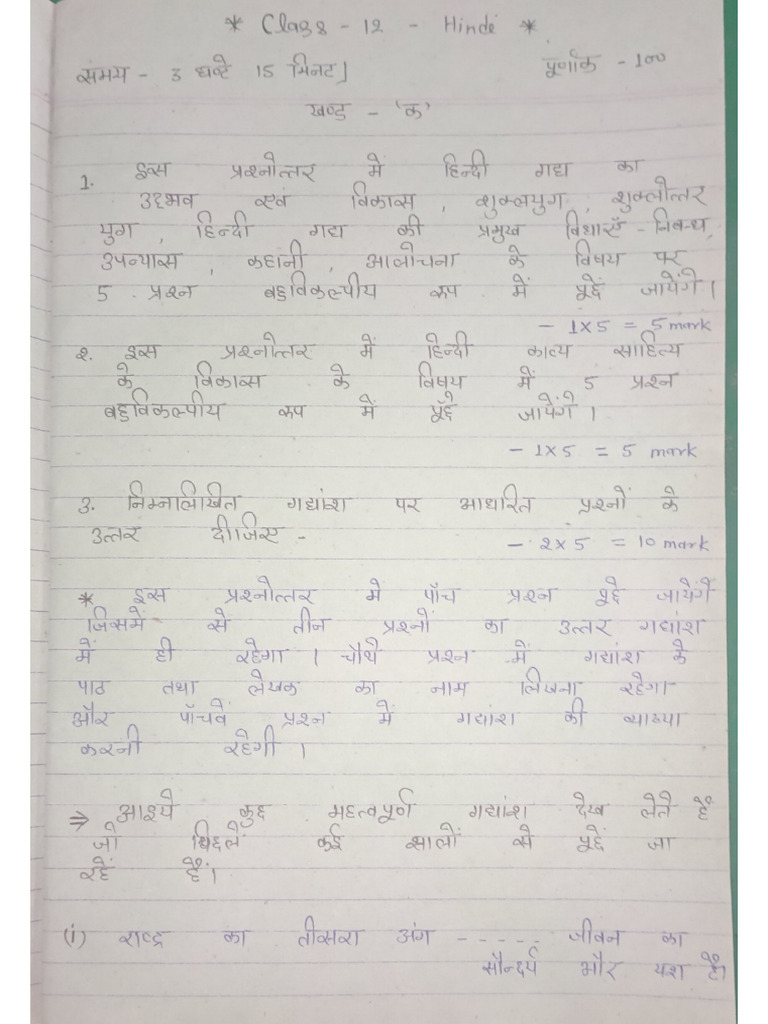 * Class - 12 - Hindi *
समय - 3 घण्टे 15 मिनट]
पूर्णांक - 100
खण्ड - 'क'
1. इस प्रश्नोत्तर में हिन्दी गद्य का
उद्भव एवं विकास, शुक्लयुग, शुक्लोत्तर
युग, हिन्दी गद्य की प्रमुख विधाएँ - निबन्ध,
उपन्यास, कहानी, आलोचना के विषय पर
5 प्रश्न बहुविकल्पीय रूप में पूछें जायेंगे।
- 1×5 = 5 mark
2. इस प्रश्नोत्तर में हिन्दी काव्य साहित्य
के विकास के विषय में 5 प्रश्न
बहुविकल्पीय रूप में पूँछे जायेंगे।
- 1×5 = 5 mark
3. निम्नलिखित गद्यांश पर आधारित प्रश्नों के
उत्तर दीजिए -
- 2×5 = 10 mark
* इस प्रश्नोत्तर मे पाँच प्रश्न पूछे जायेंगे
जिसमें से तीन प्रश्नों का उत्तर गद्यांश
में ही रहेगा। चौथे प्रश्न में गद्यांश के
पाठ तथा लेखक का नाम लिखना रहेगा
और पाँचवें प्रश्न में गद्यांश की व्याख्या
करनी रहेगी।
⇒ आइये कुछ महत्वपूर्ण गद्यांश देख लेते हैं
जो पिछलें कई सालों से पूछें जा
रहें हैं।
(i) राष्ट्र का तीसरा अंग - - - - - जीवन का
सौन्दर्य और यश है।